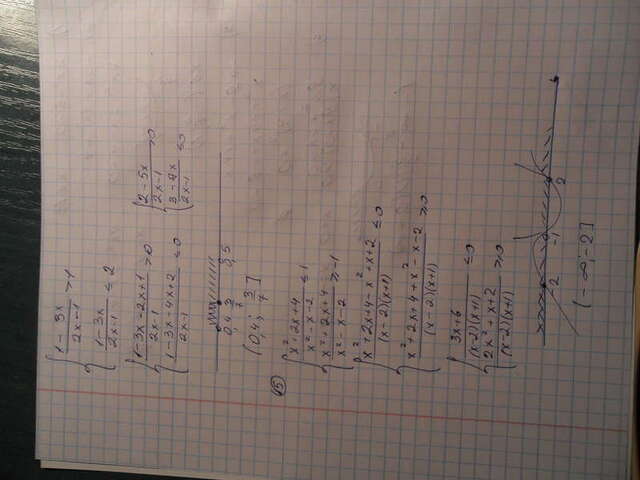 { (1-3x)/(2x-1) > 1
(1-3x)/(2x-1) ≤ 2
{ (1-3x-2x+1)/(2x-1) > 0 { (2-5x)/(2x-1) > 0
(1-3x-4x+2)/(2x-1) ≤ 0 (3-7x)/(2x-1) ≤ 0
0,4 3/7 0,5
(0,4; 3/7]
5)
{ (x²-2x+4)/(x²-x-2) ≤ 1
(x²+2x+4)/(x²-x-2) ≥ -1
{ (x²+2x+4-x²+x+2)/((x-2)(x+1)) ≤ 0
(x²+2x+4+x²-x-2)/((x-2)(x+1)) ≥ 0
{ (3x-6)/((x-2)(x+1)) ≤ 0
(2x²+x+2)/((x-2)(x+1)) ≥ 0
-2 -1 2
(-∞; -2]